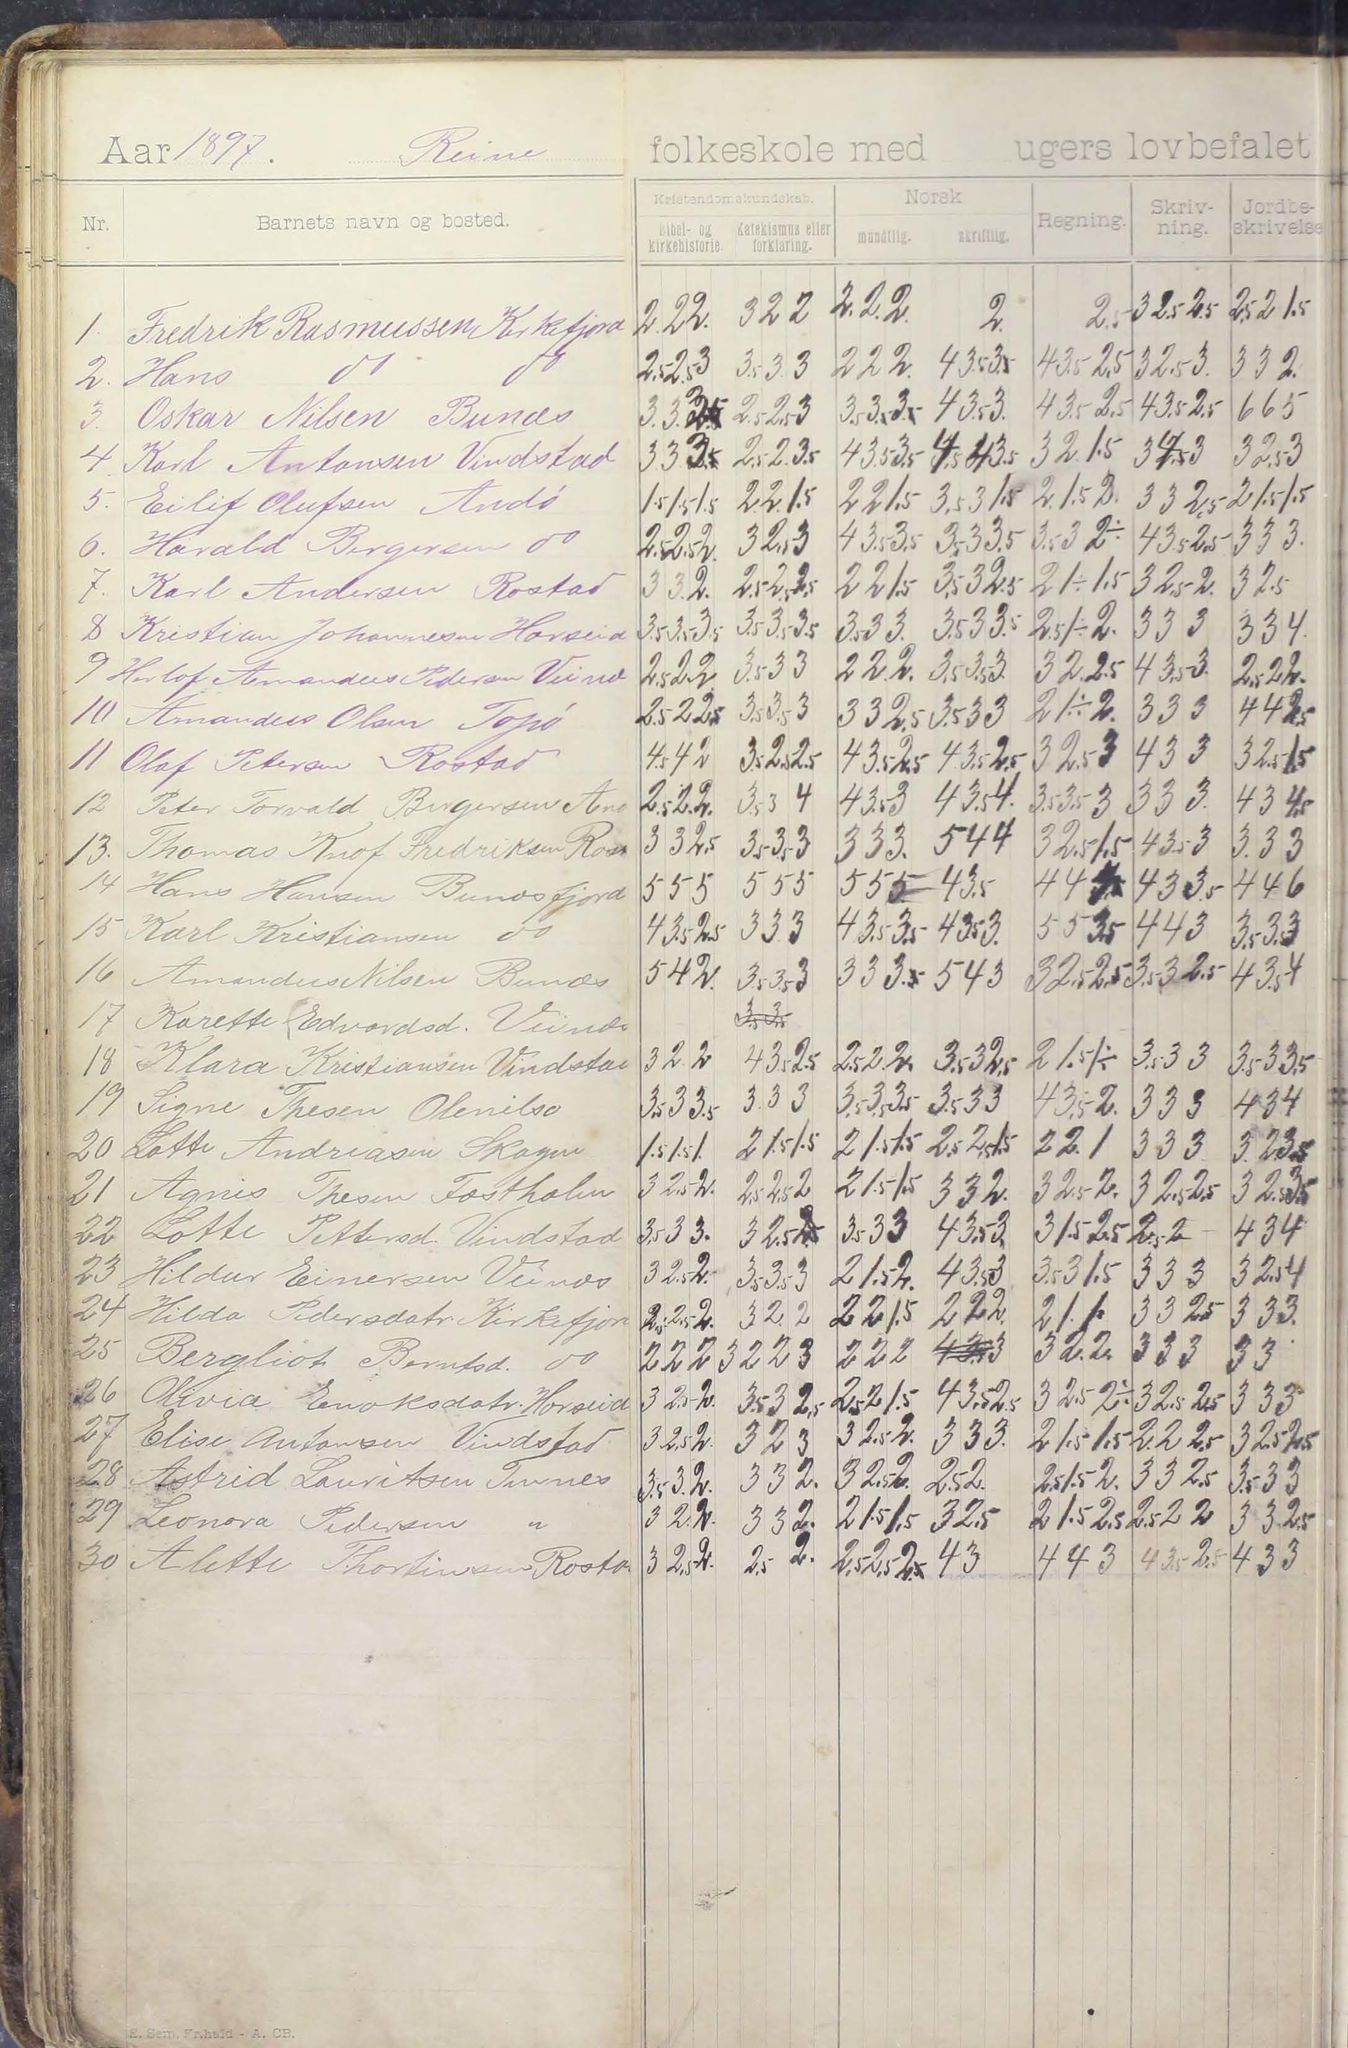 Aar 1897. Reine folkeskole med ugers lovbefalet
Nr. Barnets navn og bosted. Kristendomskundskab. Norsk Regning. Skriv-ning. Jordbe-skrivelse
Bibel- og kirkehistorie. Katekismus eller forklaring. mundtlig. skriftlig.
1. Fredrik Rasmussen Kirkefjord 2. 2 2. 3 2 2 2. 2. 2. 2. 2.5 3 2.5 2.5 2.5 2 1.5
2. Hans do do 2.5 2.5 3 3.5 3. 3 2 2 2. 4 3.5 3.5 4 3.5 2.5 3 2.5 3. 3 3 2.
3. Oskar Nilsen Bunæs 3. 3. 2.5 2.5 3 4 3.5 3. 4 3.5 2.5 4 3.5 2.5 6 6 5
4 Karl Antonsen Vindstad 3 3 3.5 2.5 2. 3.5 4 3.5 3.5 3 2 1.5 3 2.5 3
5. Eilif Olufsen Andö 1.5 1.5 1.5 2 2 1.5 2 2 1.5 3.5 3 1.5 2 1.5 2. 3 3 2.5 2 1.5 1.5
6. Harald Bergersen do 2.5 2.5 2. 3 2.5 3 4 3.5 3.5 3.5 3 3.5 3.5 3 2÷ 4 3.5 2.5 3 3 3.
7. Karl Andersen Rostad 3 3 2. 2.5 2.5 2.5 2 2 1.5 3.5 3 2.5 2 1÷ 1.5 3 2.5 2. 3 2.5
8 Kristian Johannesen Horseid 3.5 3.5 3.5 3.5 3.5 3.5 3.5 3 3. 3.5 3 3.5 2.5 1÷ 2. 3 3 3 3 3 4.
9 Amandus Pedersen 2.5 2 2 3.5 3 3 2 2 2. 3.5 3.5 3 3 2. 2.5 4 3.5 3. 2.5 2 2.
10 Amandus Olsen Topö 2.5 2 2.5 3.5 3.5 3 3 3 2.5 3.5 3 3 2 1÷ 2. 3 3 3 4 4 2.5
11 Olaf Petersen Rostad 4.5 4 2 3.5 2.5 2.5 4 3.5 2.5 4 3.5 2.5 3 2.5 3 4 3 3 3 2.5 1.5
12 Peter Torvald Bergersen And 2.5 2. 2. 3.5 3 4 4 3.5 3 4 3.5 4. 3.5 3.5 3 3 3 3. 4 3 4.5
13. Thomas Knof Fredriksen Ros 3 3 2.5 3.5 3.5 3 3 3 3. 5 4 4 3 2.5 1.5 4 3.5 3 3. 3 3
14 Hans Hansen Bunæsfjord 5 5 5 5 5 5 5 5 5 4 3.5 4 4 4 3 3.5 4 4 6
15 Karl Kristiansen do 4 3.5 2.5 3 3 3 4 3.5 3.5 4 3.5 3. 5 5 3.5 4 4 3 3.5 3. 3
16 Amandus Nilsen Bunæs 5 4 2. 3.5 3.5 3 3 3 3.5 5 4 3 3 2.5 2.5 3.5 3 2.5 4 3.5 4
17 Karette Edvardsd. 3.5 3.5
18 Klara Kristiansen Vindstad 3 2 2 4 3.5 2.5 2.5 2. 2. 3.5 3 2.5 2 1.5 1÷ 3.5 3 3 3.5 3 3.5
19 Signe Thesen Olenilsö 3.5 3 3.5 3. 3 3 3.5 3.5 3.5 3.5 3 3 4 3.5 2. 3 3 3 4 3 4
20 Lotte Andreasen Skagen 1.5 1.5 1. 2 1.5 1.5 2 1.5 1.5 2.5 2.5 1.5 2 2 1 3 3 3 3. 2 3.5
21 Agnes Thesen 3 2.5 2. 2.5 2.5 2 2 1.5 1.5 3 3 2. 3 2.5 2. 3 2.5 2.5 3 2.5 3.5
22 Lotte Pettersd. Vindstad 3.5 3 3. 3 2.5 3.5 3 3 4 3.5 3 3 1.5 2.5 2.5 2 4 3 4
23 Hildur Einersen 3 2.5 2. 3.5 3.5 3 2 1.5 2. 4 3.5 3 3.5 3 1.5 3 3 3 3 2.5 4
24 Hilda Pedersdatr. Kirkefjor 2.5 2.5 2. 3 2. 2 2 2 1.5 2 2 2. 2 1. 1. 3 3 2.5 3 3 3.
25 Bergliot Berntsd. do 2 2 2 3 2 2 3 2 2 2 4 3.5 3 3 2. 2. 3 3 3 3 3
26 Olivia Enoksdatr. Horseid 3 2.5 2. 3.5 3 2.5 2.5 2 1.5 4 3.5 2.5 3 2.5 2÷ 3 2.5 2.5 3 3 3
27 Elise Antonsen Vindstad 3 2.5 2. 3 2 3 3 2.5 2. 3 3 3. 2 1.5 1.5 2. 2 2.5 3 2.5 2.5
28 Astrid Lauritsen Tinnes 3.5 3. 2. 3 3 2. 3 2.5 2. 2.5 2. 2.5 1.5 2. 3 3 2.5 3.5 3 3
29 Leonora Pedersen " 3 2. 2. 3 3 2. 2 1.5 1.5 3 2.5 2 1.5 2.5 2.5 2 2 3 3 2.5
30 Alette Thortinsen Rosta 3 2.5 2. 2.5 2. 2.5 2.5 2.5 4 3 4 4 3 4 3.5 2.5 4 3 3
E. Sem, Fr.hald - A. CB.